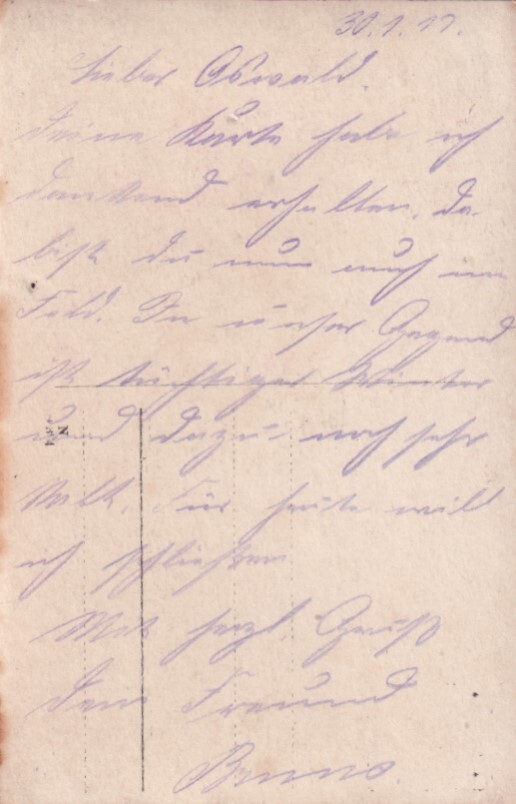 30.1.17.
Lieber Oswald.
Deine Karte habe ich
dankend erhalten. Da
bist du nun auch im
Feld. In unser Gegend
ist tüchtiger Winter
und dazu noch sehr
kalt. Für heute will
ich schließen
Mit herzl. Gruß
dein Freund
Bruno.